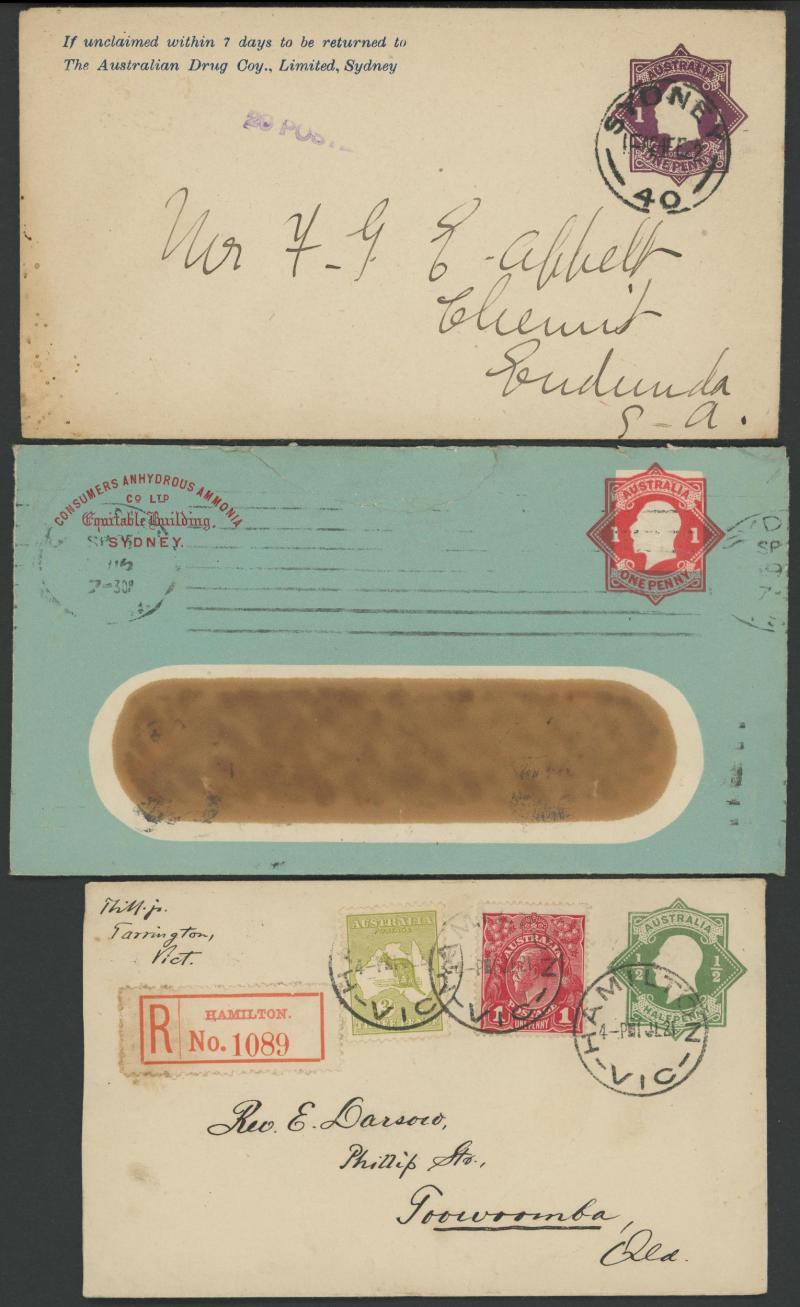 If unclaimed within 7 days to be returned to
The Australian Drug Coy., Limited, Sydney
AUSTRALIA
1
ONE PENNY
SYDNEY
40
Mr F. G. E. Appelt
Chemist
Eudunda
S-A.
CONSUMERS ANHYDROUS AMMONIA
CO LTD
Equitable Building,
SYDNEY.
SP
7-30P
AUSTRALIA
1 1
ONE PENNY
SP
Tarrington,
Vict.
R
HAMILTON.
No. 1089
AUSTRALIA
POSTAGE
3
HAMILTON
VIC
AUSTRALIA
POSTAGE
1 1
ONE PENNY
VIC
AUSTRALIA
½ ½
HALFPENNY
HAMILTON
4-PM 1 JL 21
-VIC-
Rev. E. Darsow,
Phillip Str.,
Toowoomba,
Qld.